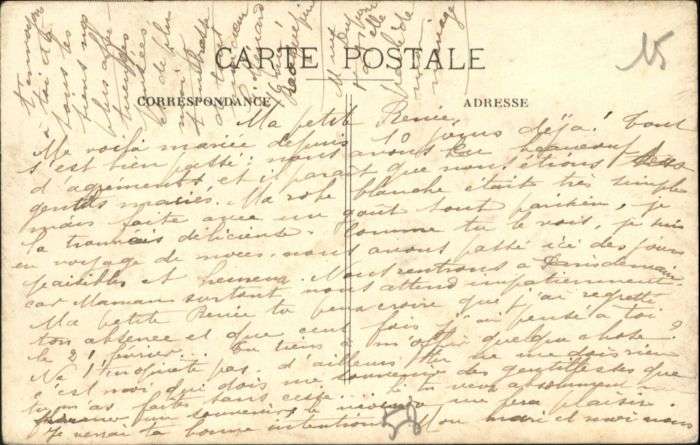 CARTE POSTALE
CORRESPONDANCE
ADRESSE
15
Ma petite Renée,
Me voilà mariée depuis 10 jours déjà! Tout
s'est bien passé; nous avons eu beaucoup
d'agréments et il paraît que nous étions
gentils mariés. Ma robe blanche était très simple
mais faite avec un goût tout parisien, je
la trouvais délicieuse. Comme tu le vois, je suis
en voyage de noces. nous avons passé ici des jours
paisibles et heureux. Nous rentrons à Paris demain
car Maman surtout nous attend impatiemment
Ma petite Renée tu peux croire que j'ai regretté
ton absence et que cent fois j'ai pensé à toi
le 21 février... Tu tiens à m'offrir quelque chose?
Ne t'inquiète pas. d'ailleurs tu ne me dois rien
c'est moi qui dois me souvenir des gentillesses que
tu m'as faites sans cesse... Si tu veux absolument
un souvenir me fera plaisir.
Je verrai ta bonne intention. Mon mari et moi nous
58
à toi et à
tous les
tous nos
plus affectueux